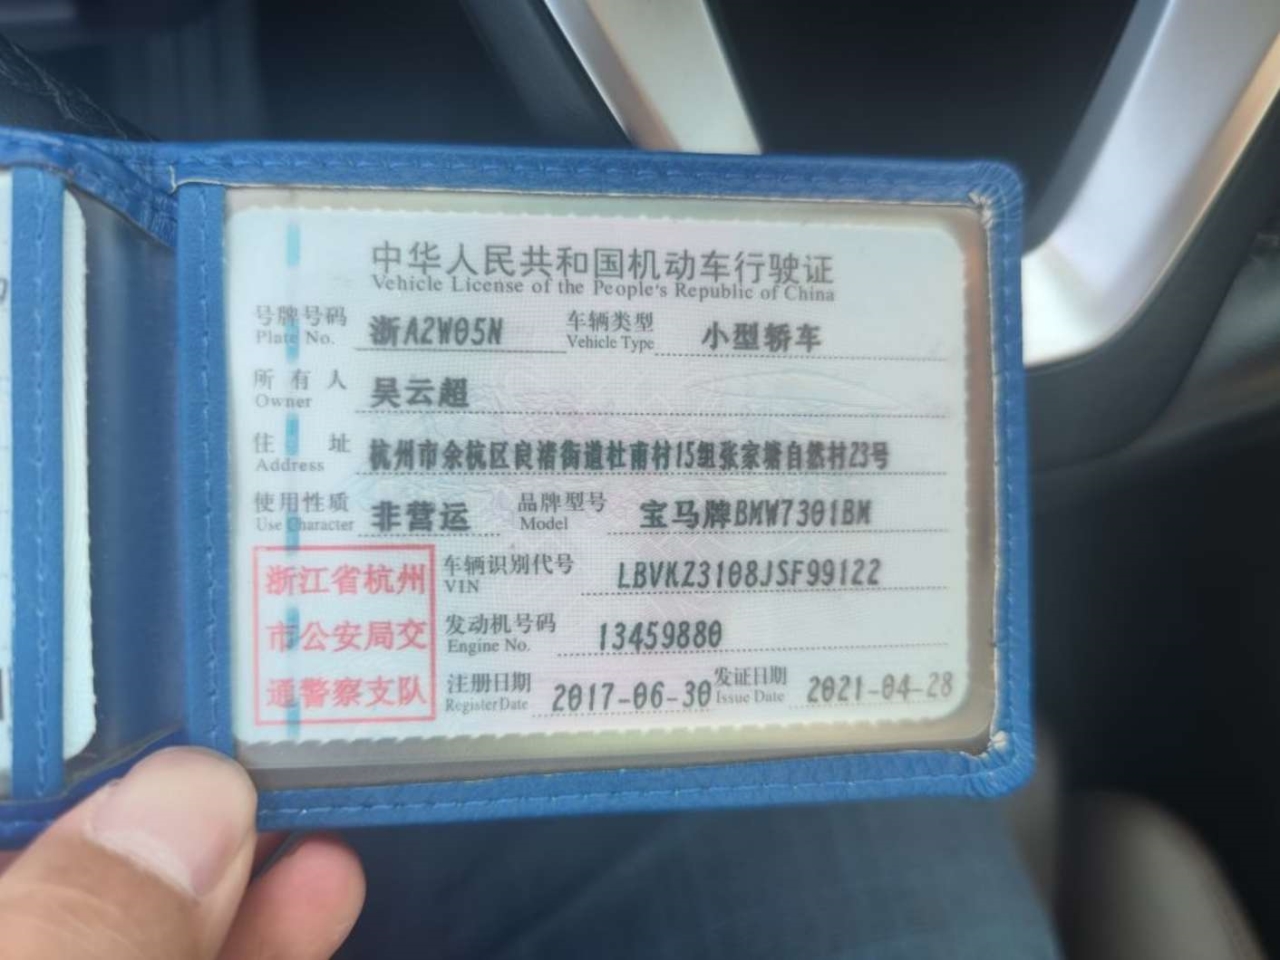 中华人民共和国机动车行驶证
Vehicle License of the People's Republic of China
号牌号码 浙A2W05N 车辆类型 小型轿车
Plate No. Vehicle Type
所有人 吴云超
Owner
住址 杭州市余杭区良渚街道杜甫村15组张家塘自然村23号
Address
使用性质 非营运 品牌型号 宝马牌BMW7301BM
Use Character Model
浙江省杭州
市公安局交
通警察支队
车辆识别代号 LBVKZ3108JSF99122
VIN
发动机号码 13459880
Engine No.
注册日期 2017-06-30 发证日期 2021-04-28
Register Date Issue Date